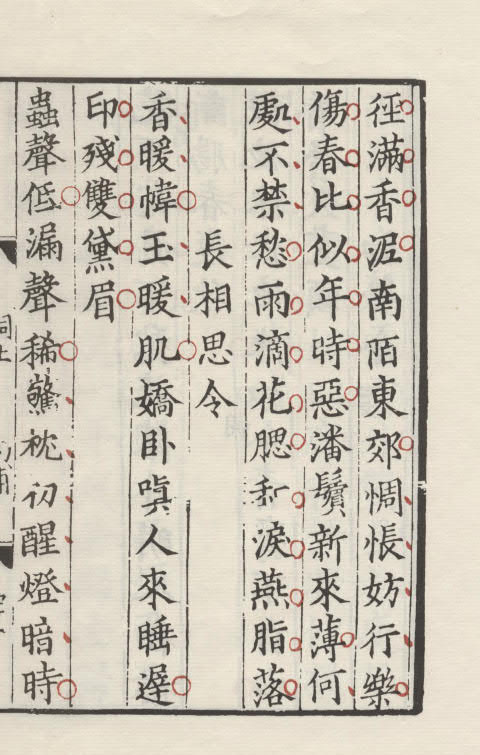 徑滿香泥南陌東郊惆悵妨行樂
傷春比似年時惡潘鬢新來薄何
處不禁愁雨滴花腮和淚燕脂落
長相思令
香暖幃玉暖肌嬌卧嗔人來睡遲
印殘雙黛眉
蟲聲低漏聲稀驚枕初醒燈暗時